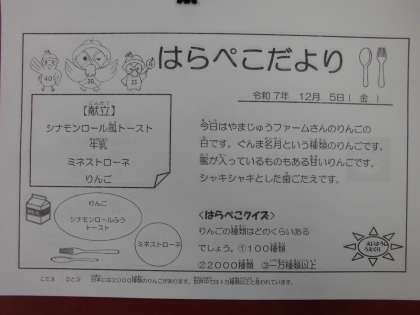 はらぺこだより
令和7年 12月 5日(金)
【献立】
シナモンロール風トースト
牛乳
ミネストローネ
りんご
今日はやまじゅうファームさんのりんごの
日です。ぐんま名月という種類のりんごです。
蜜が入っているものもある甘いりんごです。
シャキシャキとした歯ごたえです。
りんご
シナモンロールふう
トースト
ミネストローネ
<はらぺこクイズ>
りんごの種類はどのくらいある
でしょう。①100種類
②2000種類 ③一万種類以上
こたえ